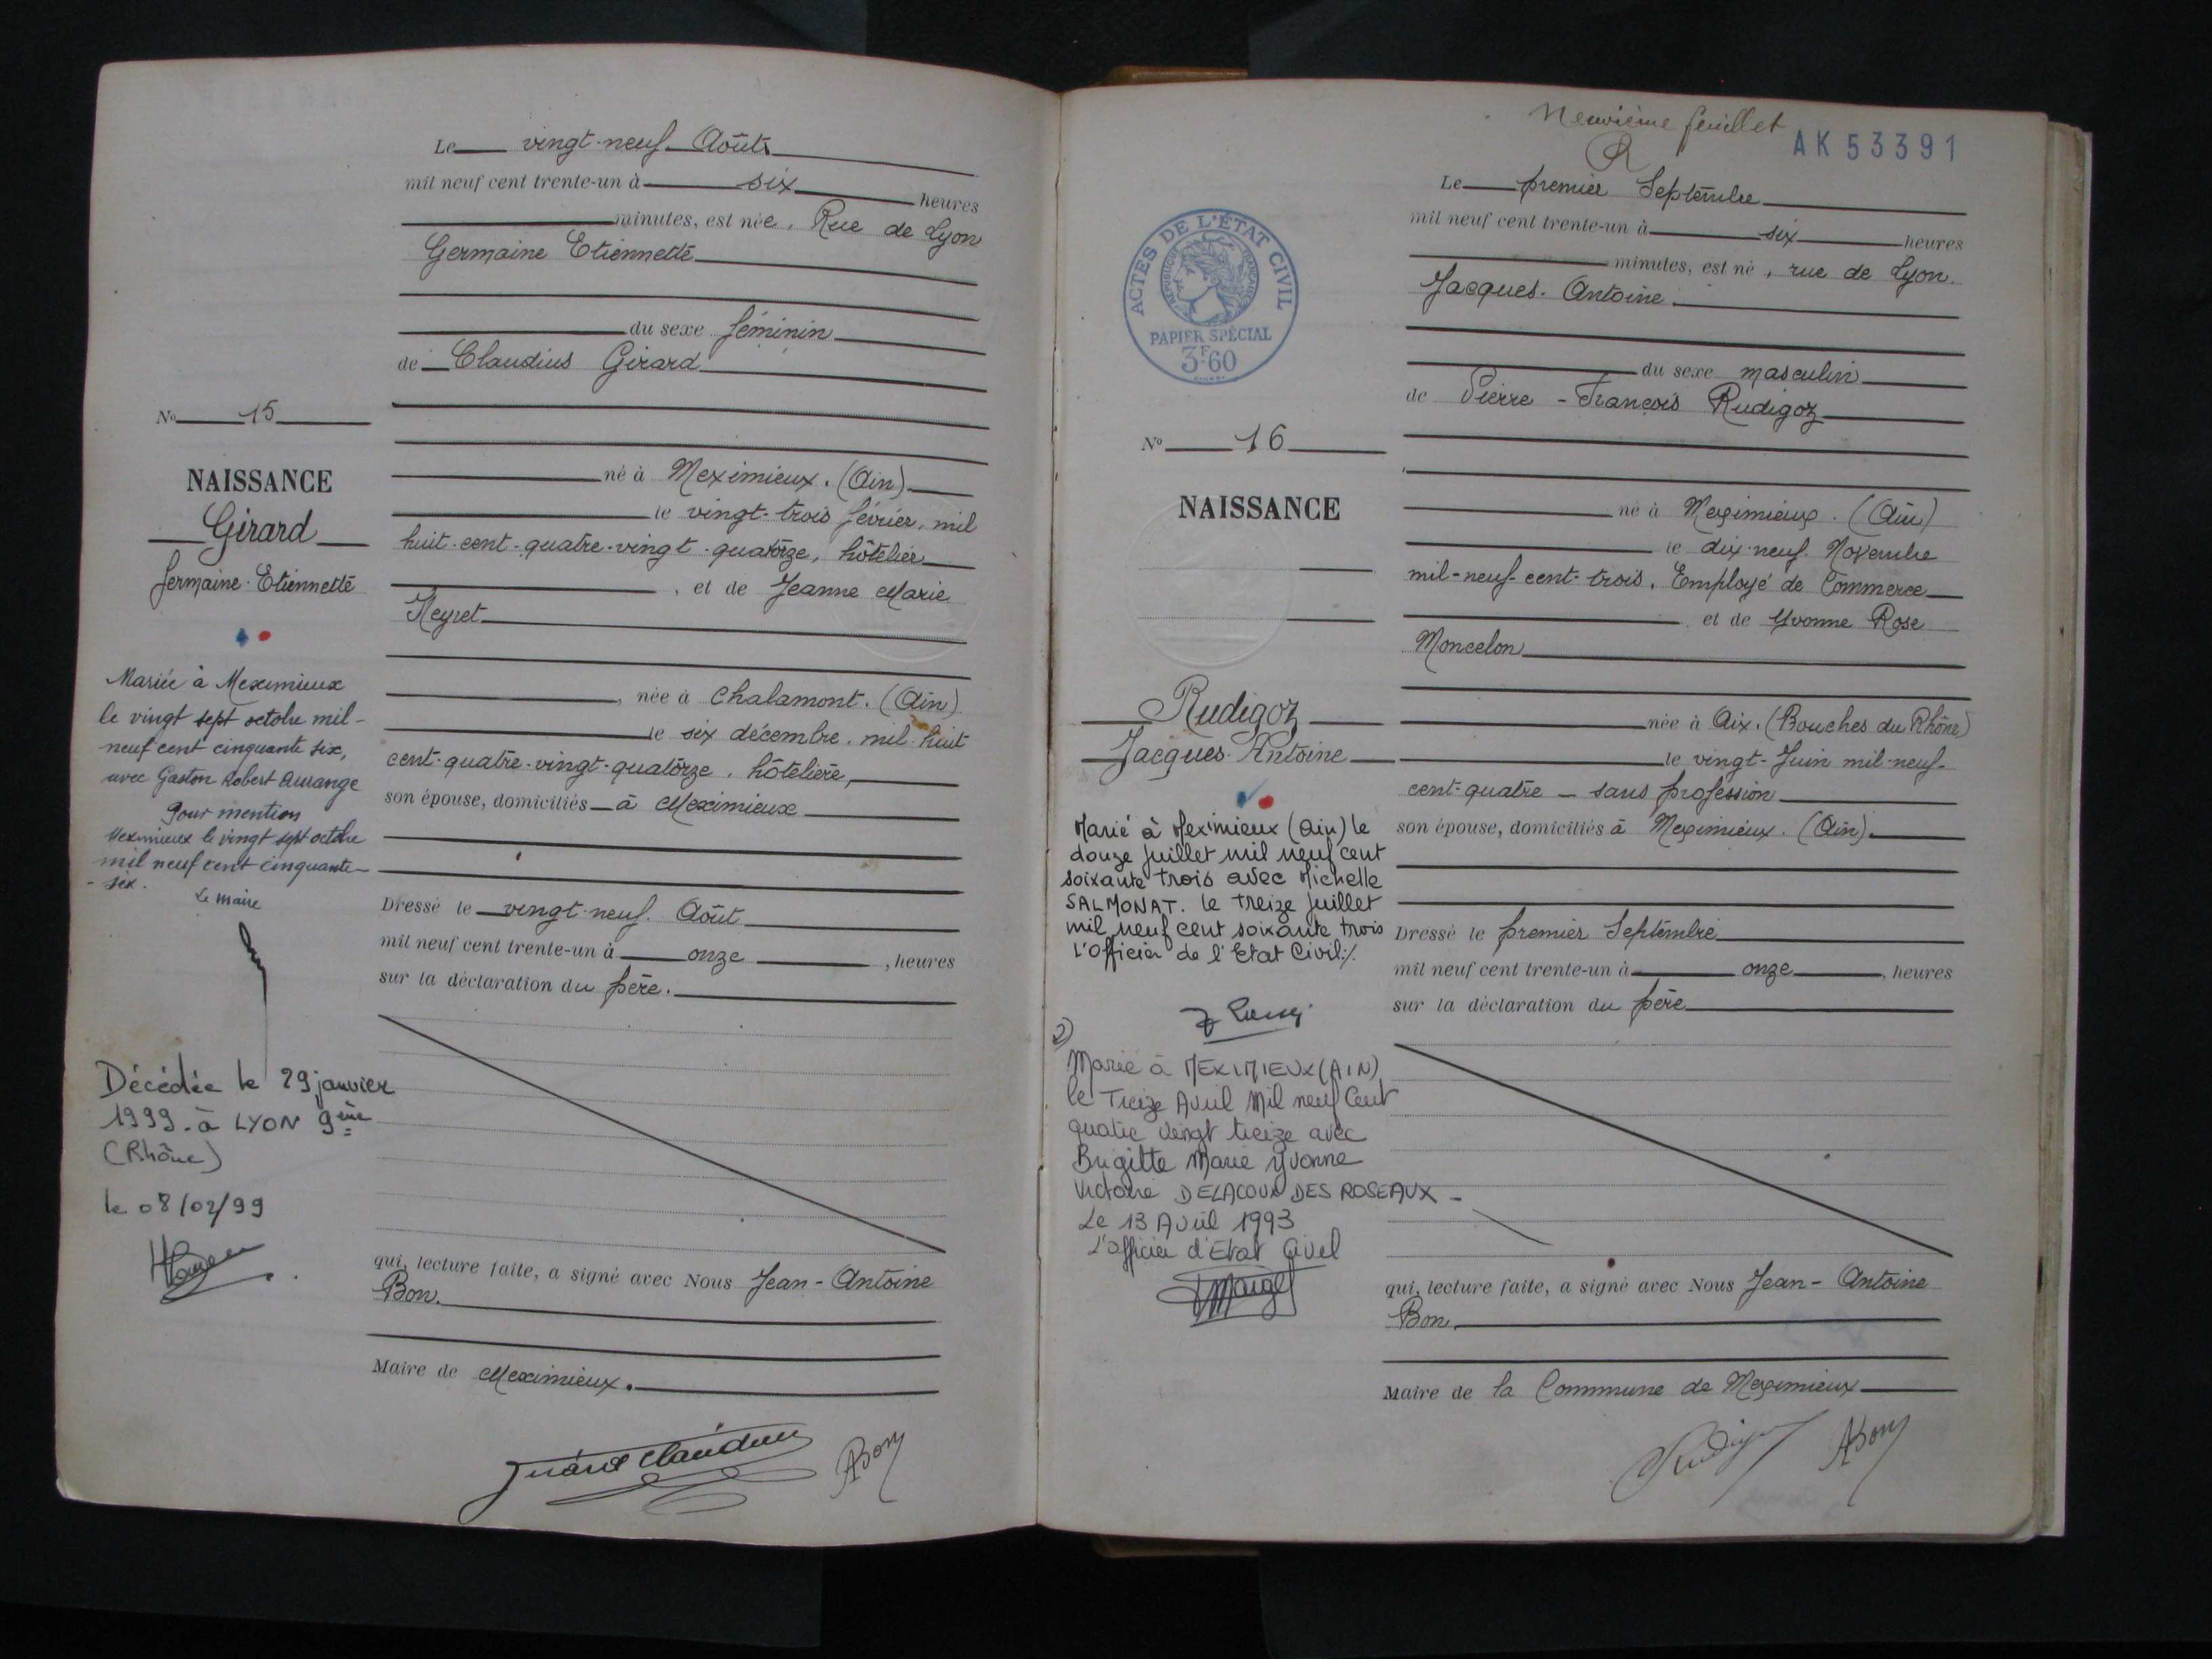 Le vingt-neuf Août
mil neuf cent trente-un à six heures
minutes, est née, Rue de Lyon
Germaine Etiennette
du sexe féminin
de Claudius Girard
N° 15
NAISSANCE
Girard
Germaine Etiennette
né à Meximieux. (Ain)
le vingt-trois février, mil
huit-cent-quatre-vingt-quatorze, hôtelier
, et de Jeanne Marie
Neyret
, née à Chalamont. (Ain)
le six décembre. mil huit
cent-quatre-vingt-quatorze, hôtelière,
son épouse, domiciliés à Meximieux
Mariée à Meximieux
le vingt sept octobre mil-
neuf cent cinquante six,
avec Gaston Robert
Pour mention
Meximieux le vingt sept octobre
mil neuf cent cinquante-
-six.
Le maire
Dressé le vingt-neuf. Août
mil neuf cent trente-un à onze, heures
sur la déclaration du père.
Décédée le 29 janvier
1999. à LYON 9ème
(Rhône)
le 08/02/99
qui, lecture faite, a signé avec Nous Jean-Antoine
Bon.
Maire de Meximieux.
Girard Claudius
ABon
Neuvième feuillet
AK53391
Le premier Septembre
mil neuf cent trente-un à six heures
minutes, est né, rue de Lyon.
Jacques-Antoine
du sexe masculin
de Pierre-François Rudigoz
ACTES DE L'ÉTAT CIVIL
RÉPUBLIQUE FRANÇAISE
PAPIER SPÉCIAL
3F60
N° 16
NAISSANCE
Rudigoz
Jacques-Antoine
né à Meximieux. (Ain)
le dix-neuf. Novembre
mil-neuf-cent-trois. Employé de Commerce
et de Yvonne Rose
Moncelon
née à Aix. (Bouches du Rhône)
le vingt-Juin mil-neuf-
cent-quatre - sans profession
son épouse, domiciliés à Meximieux. (Ain).
Marié à Meximieux (Ain) le
douze Juillet mil neuf cent
soixante trois avec Michelle
SALMONAT. le treize Juillet
mil neuf cent soixante trois
L'Officier de l'Etat Civil:/.
Dressé le premier Septembre
mil neuf cent trente-un à onze, heures
sur la déclaration du père
2)
Marié à MEXIMIEUX (AIN)
le Treize Avril Mil neuf Cent
quatre Vingt treize avec
Brigitte Marie Yvonne
Victoire DELACOUR DES ROSEAUX -
Le 13 Avril 1993
L'officier d'Etat Civil
qui, lecture faite, a signé avec Nous Jean-Antoine
Bon.
Maire de la Commune de Meximieux
Rudigoz
ABon